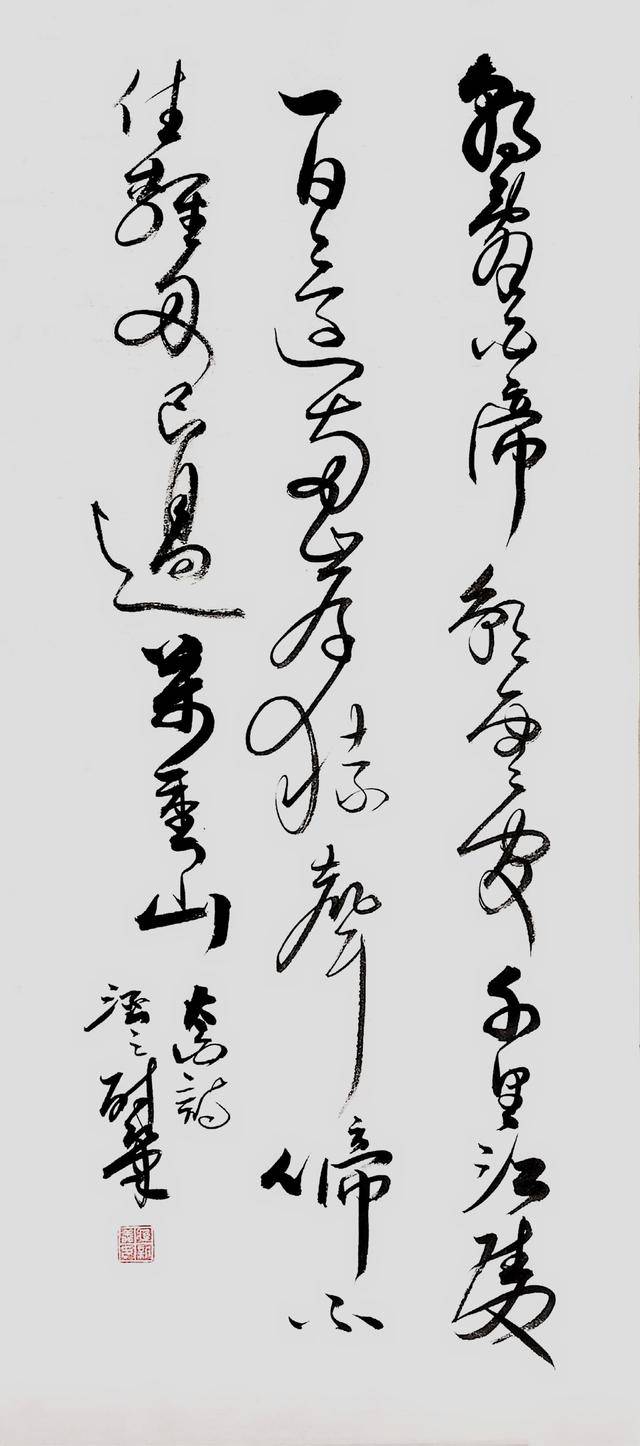 朝辭白帝彩雲間千里江陵
一日還兩岸猿聲啼不
住輕舟已過萬重山
太白詩